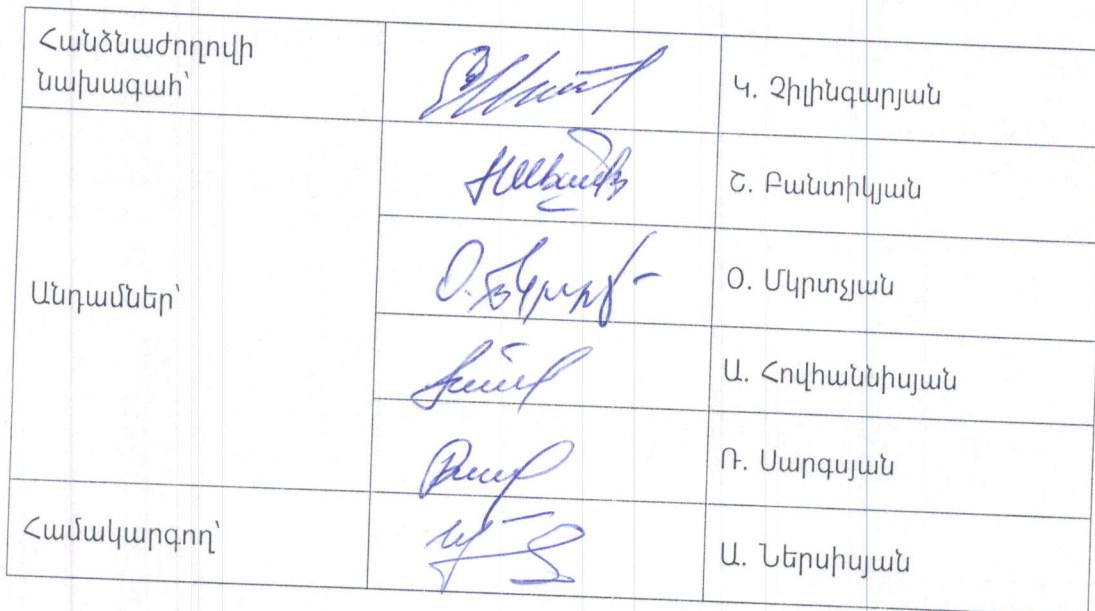 Հանձնաժողովի
նախագահ՝
Կ. Չիլինգարյան
Շ. Բանտիկյան
Անդամներ՝
Օ. Մկրտչյան
Ա. Հովհաննիսյան
Ռ. Սարգսյան
Համակարգող՝
Ա. Ներսիսյան